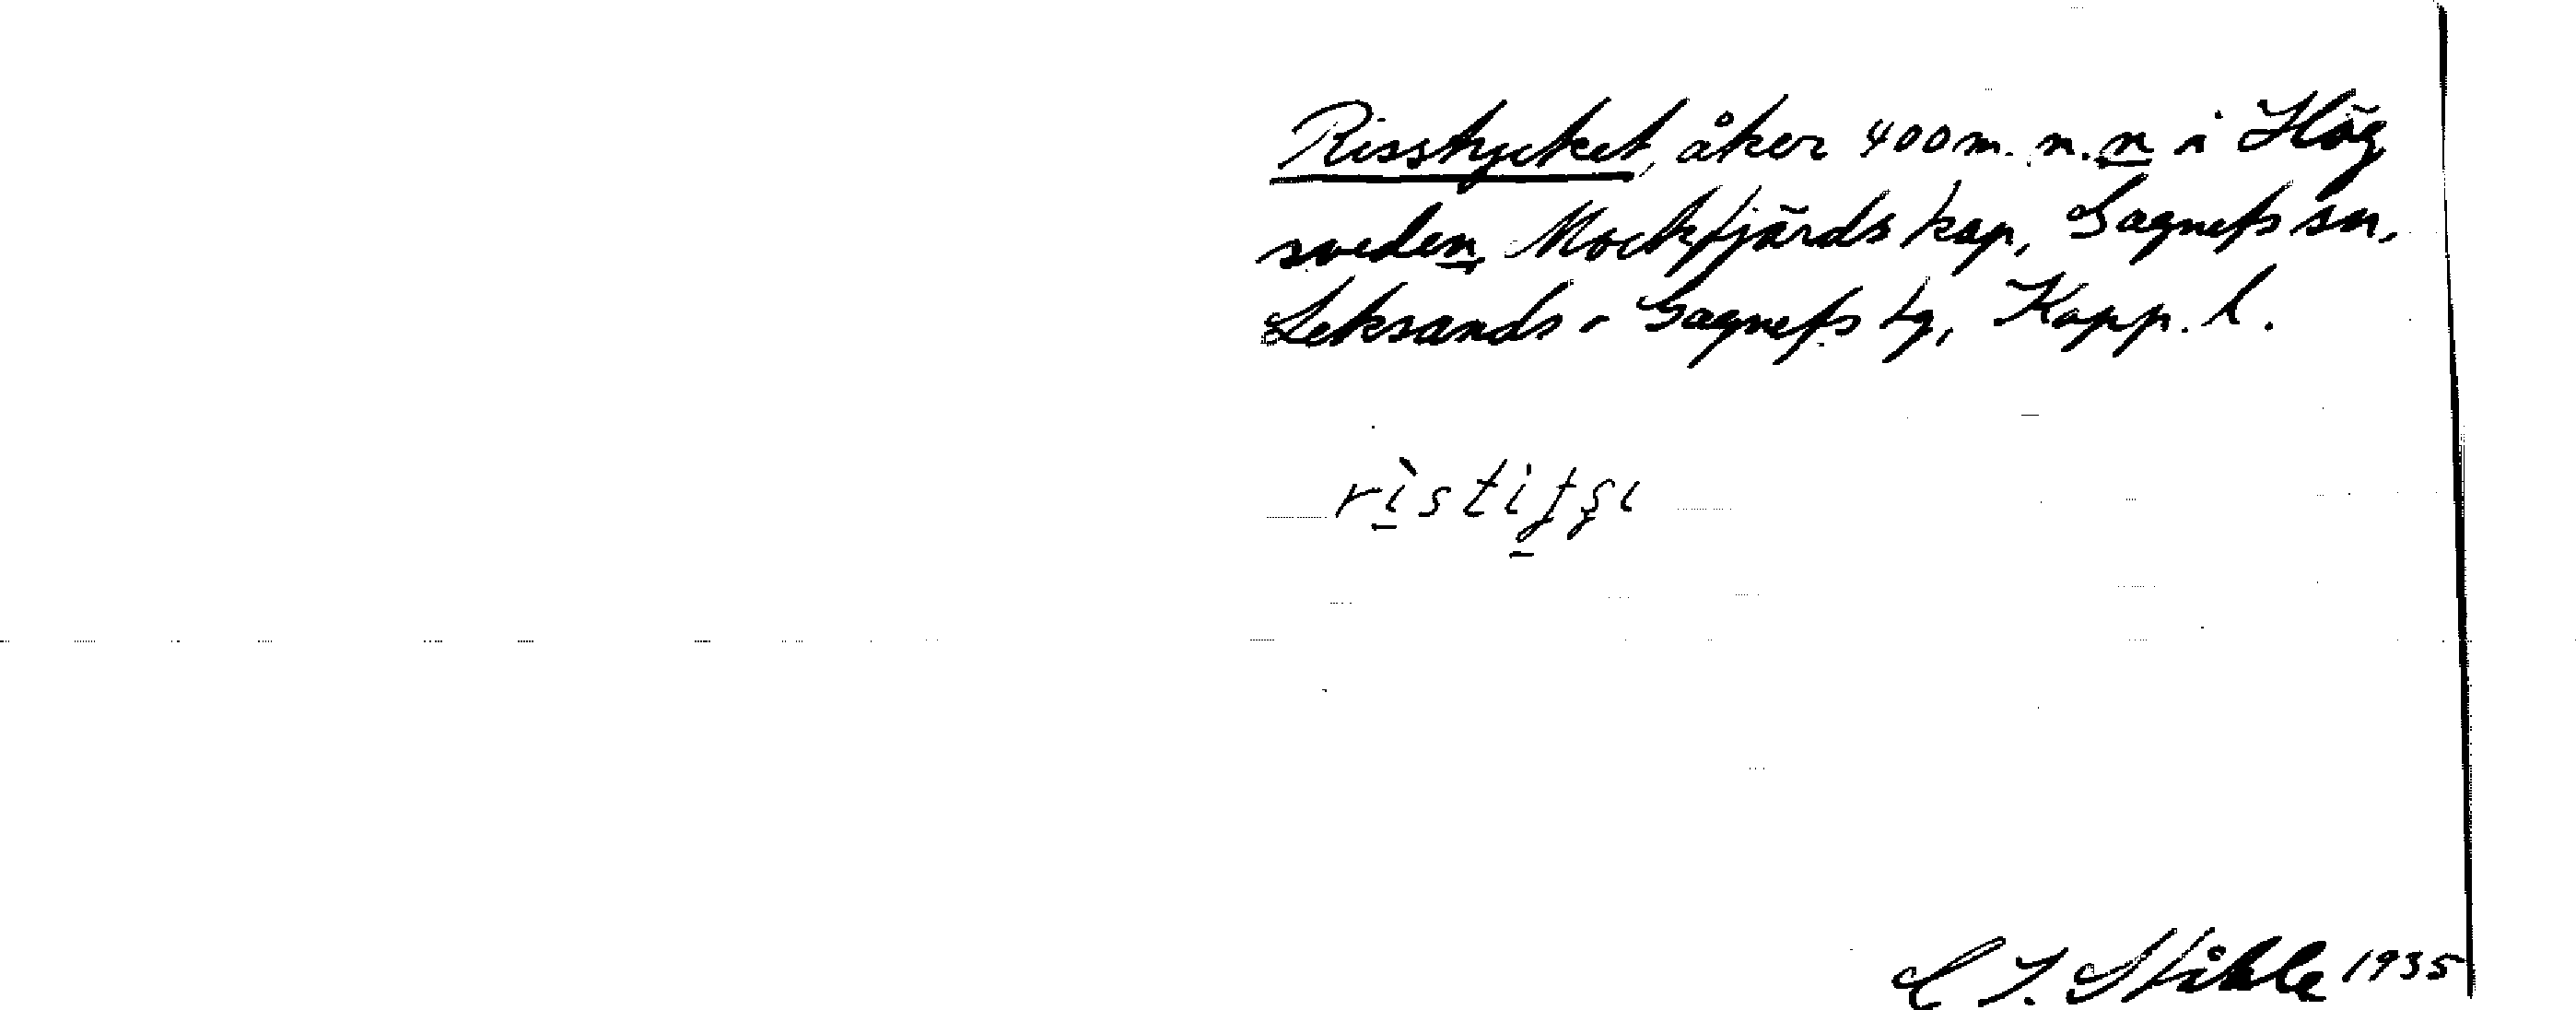 Risstycket, åker 400 m. n. n i Hög
sveden, Mockfjärds kap, Gagnefs sn,
Leksands o Gagnefs tg, Kopp. l.
C I. Ståhle 1935